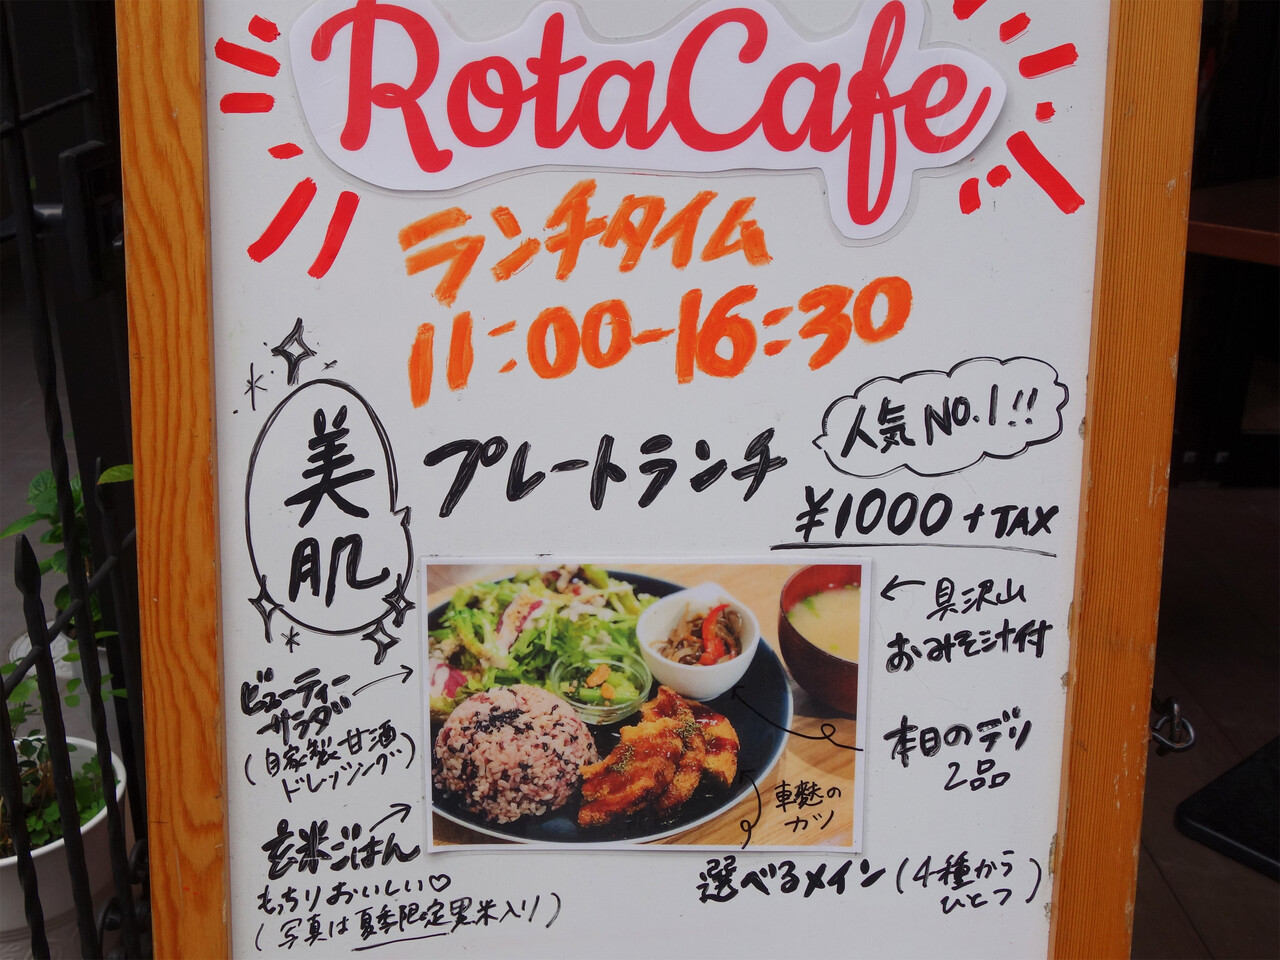 RotaCafe
ランチタイム
11:00-16:30
人気NO.1!!
美肌
プレートランチ
¥1000+TAX
←具沢山
おみそ汁付
ビューティー
サラダ→
(自家製甘酒
ドレッシング)
本日のデリ
2品
車麩の
カツ
玄米ごはん
もっちりおいしい♡
(写真は夏季限定黒米入り)
選べるメイン(4種から
ひとつ)